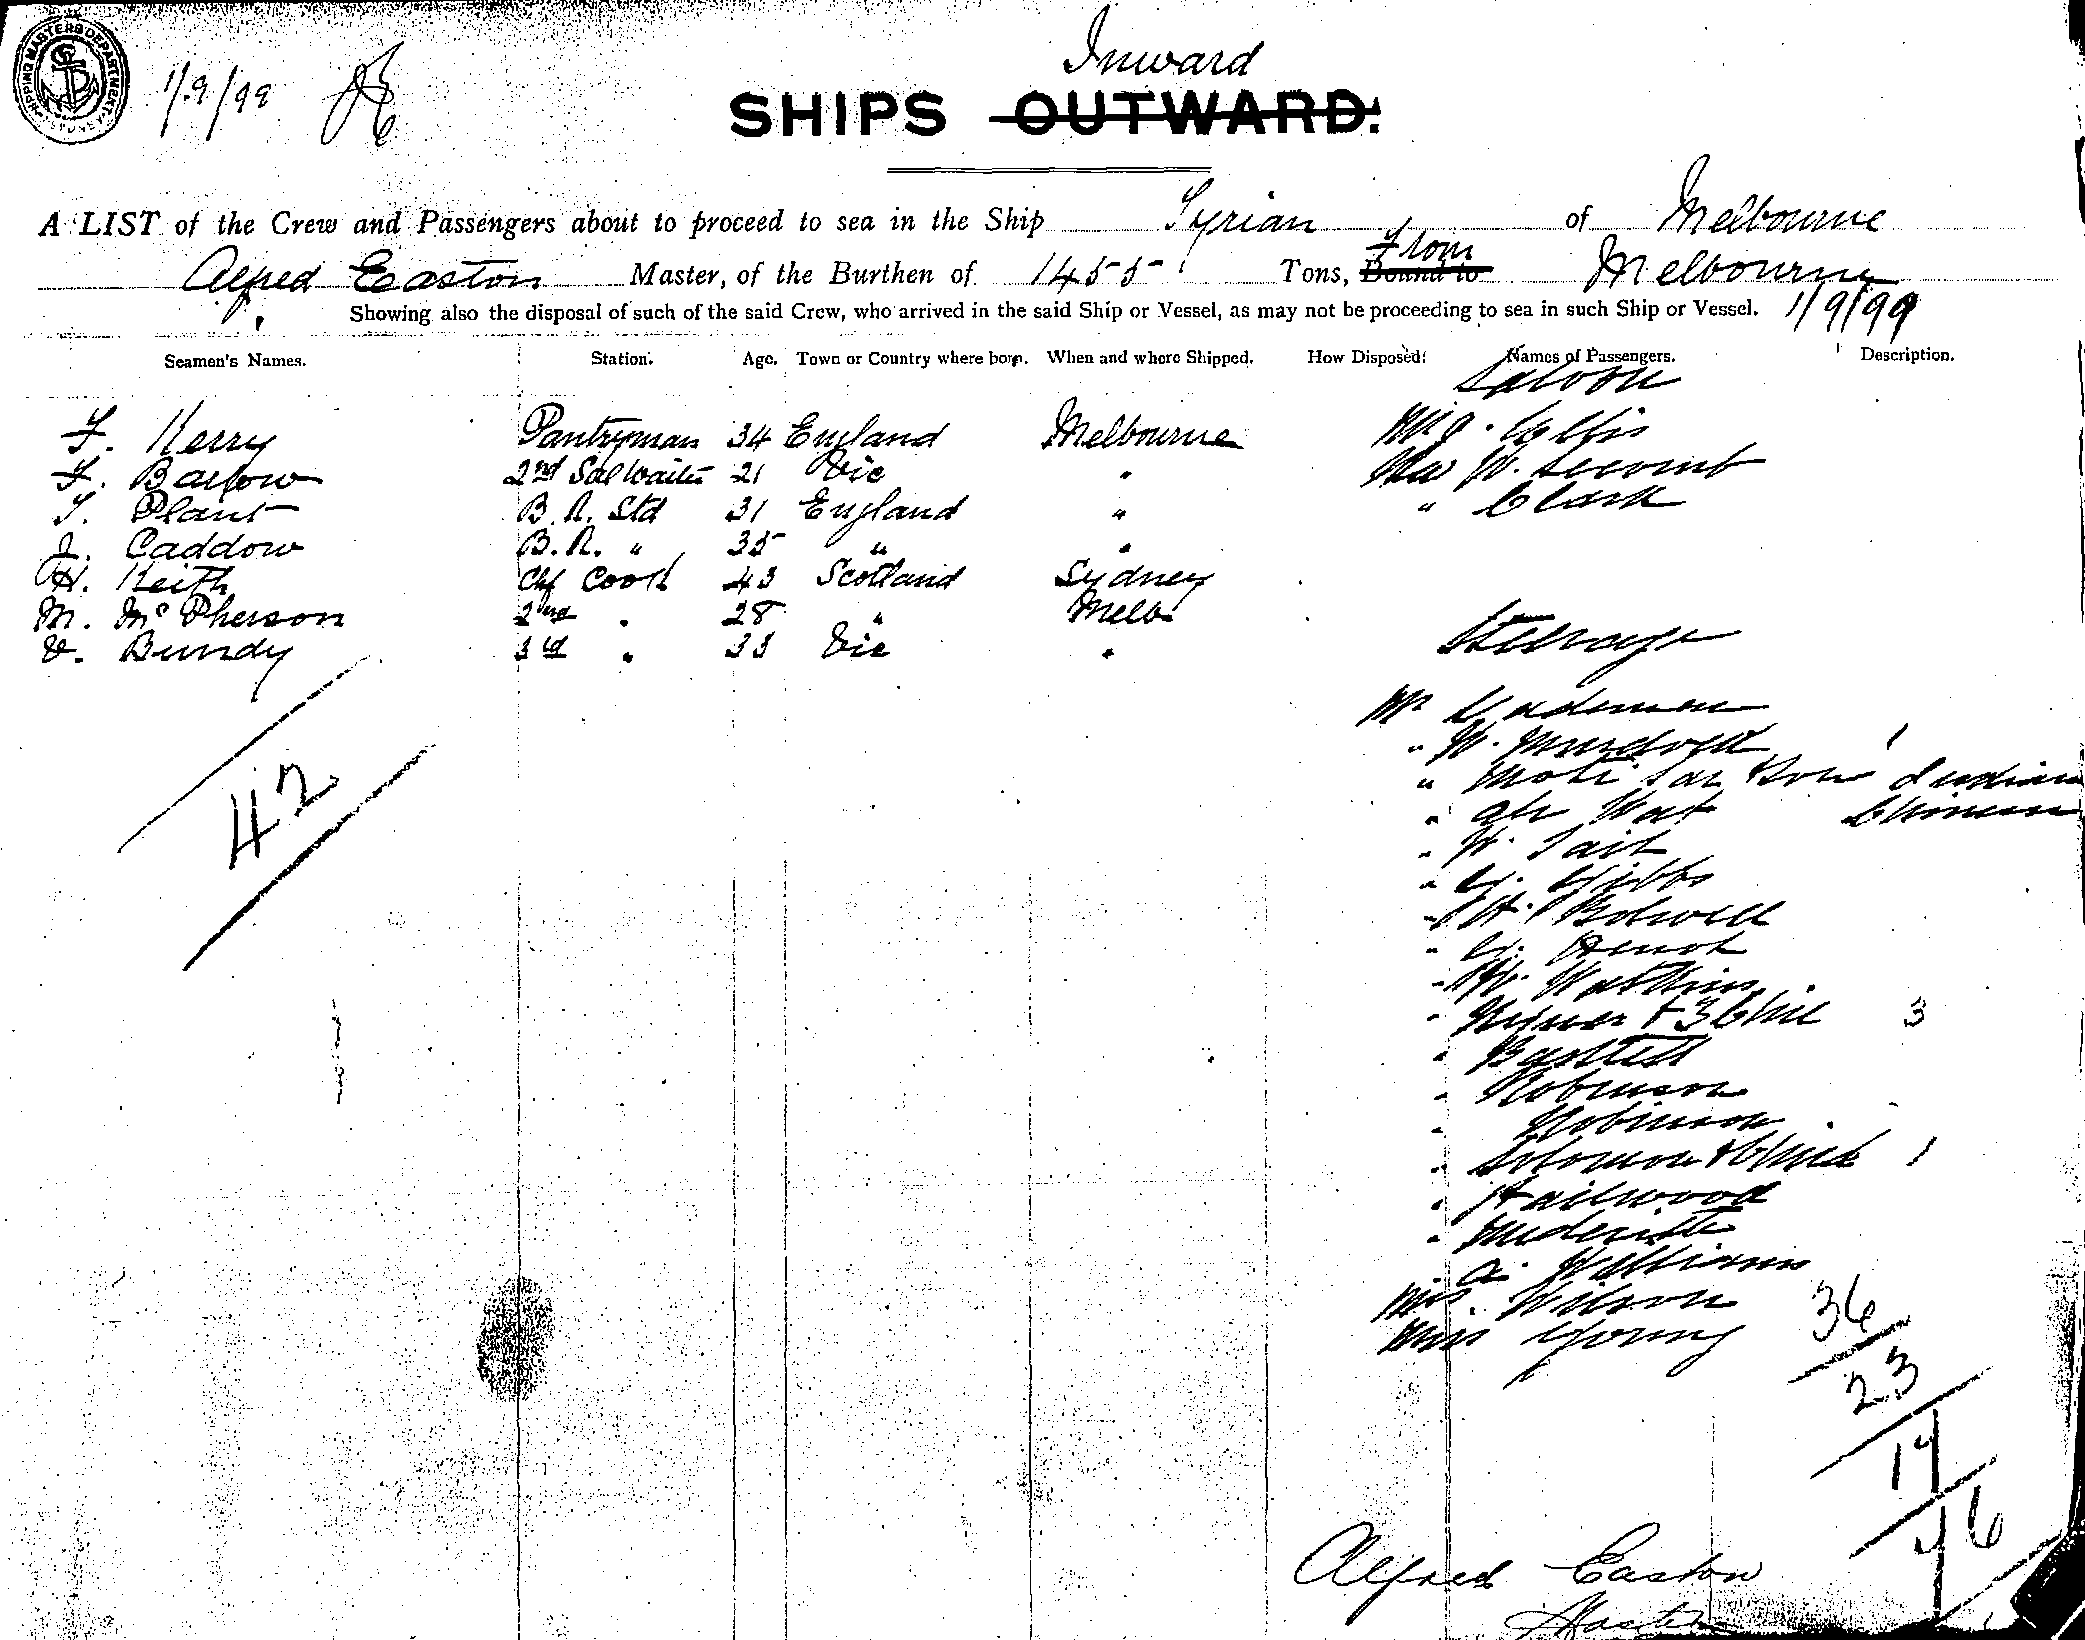 SHIPPING MASTERS DEPARTMENT SYDNEY
1/9/99
Inward
SHIPS OUTWARD.
A LIST of the Crew and Passengers about to proceed to sea in the Ship Syrian of Melbourne
Alfred Easton Master, of the Burthen of 1455 Tons, Bound to From Melbourne
Showing also the disposal of such of the said Crew, who arrived in the said Ship or Vessel, as may not be proceeding to sea in such Ship or Vessel. 1/9/99
Seamen's Names. Station. Age. Town or Country where born. When and where Shipped. How Disposed: Names of Passengers. Description.
Saloon
F. Kerry Pantryman 34 England Melbourne
F. Barlow 2nd Sal Waiter 21 Vic " W. Secomb
T. Plant B.R. Std 31 England " " Clark
J. Caddow B.R. " 35 " "
H. Keith Chf Cook 43 Scotland Sydney
M. McPherson 2nd " 28 " Melb
V. Bundy 3rd " 33 Vic "
Steerage
Mr
" W. Murdoch 1
" Indian
" Ah Wat Chinese
" W. Tait
" G. Gibbs
" H. Bolwell
" G.
" W. Watkins
" + 3 Chil 3
"
" Robinson
" Robinson
" Solomon & Child 1
" Hailwood
"
" A. Williams
Mrs. Wilson
Miss Young
42
36
23
17
76
Alfred Easton
Master